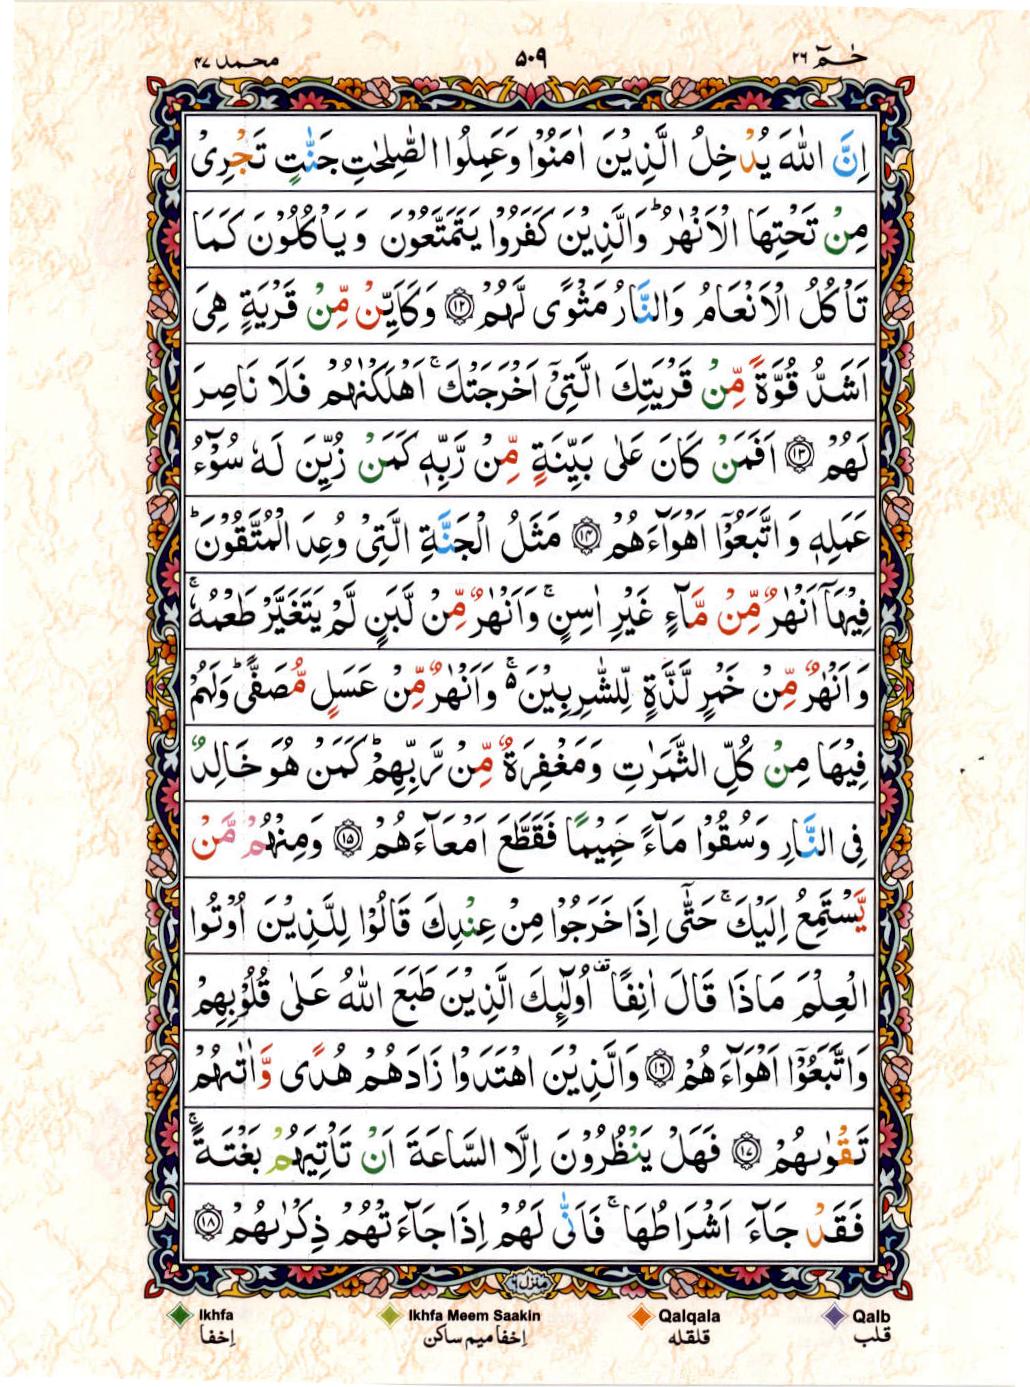 حٰمٓ ٢٦
٥٠٩
محمد ٤٧
اِنَّ اللّٰهَ يُدْخِلُ الَّذِيْنَ اٰمَنُوْا وَعَمِلُوا الصّٰلِحٰتِ جَنّٰتٍ تَجْرِىْ
مِنْ تَحْتِهَا الْاَنْهٰرُ ؕ وَالَّذِيْنَ كَفَرُوْا يَتَمَتَّعُوْنَ وَيَاْكُلُوْنَ كَمَا
تَاْكُلُ الْاَنْعَامُ وَالنَّارُ مَثْوًى لَّهُمْ ﴿١٢﴾ وَكَاَيِّنْ مِّنْ قَرْيَةٍ هِىَ
اَشَدُّ قُوَّةً مِّنْ قَرْيَتِكَ الَّتِىْٓ اَخْرَجَتْكَ ۚ اَهْلَكْنٰهُمْ فَلَا نَاصِرَ
لَهُمْ ﴿١٣﴾ اَفَمَنْ كَانَ عَلٰى بَيِّنَةٍ مِّنْ رَّبِّهٖ كَمَنْ زُيِّنَ لَهٗ سُوْٓءُ
عَمَلِهٖ وَاتَّبَعُوْٓا اَهْوَآءَهُمْ ﴿١٤﴾ مَثَلُ الْجَنَّةِ الَّتِىْ وُعِدَ الْمُتَّقُوْنَ ؕ
فِيْهَآ اَنْهٰرٌ مِّنْ مَّآءٍ غَيْرِ اٰسِنٍ ۚ وَاَنْهٰرٌ مِّنْ لَّبَنٍ لَّمْ يَتَغَيَّرْ طَعْمُهٗ ۚ
وَاَنْهٰرٌ مِّنْ خَمْرٍ لَّذَّةٍ لِّلشّٰرِبِيْنَ ۚ۬ وَاَنْهٰرٌ مِّنْ عَسَلٍ مُّصَفًّى ؕ وَلَهُمْ
فِيْهَا مِنْ كُلِّ الثَّمَرٰتِ وَمَغْفِرَةٌ مِّنْ رَّبِّهِمْ ؕ كَمَنْ هُوَ خَالِدٌ
فِى النَّارِ وَسُقُوْا مَآءً حَمِيْمًا فَقَطَّعَ اَمْعَآءَهُمْ ﴿١٥﴾ وَمِنْهُمْ مَّنْ
يَّسْتَمِعُ اِلَيْكَ ۚ حَتّٰٓى اِذَا خَرَجُوْا مِنْ عِنْدِكَ قَالُوْا لِلَّذِيْنَ اُوْتُوا
الْعِلْمَ مَاذَا قَالَ اٰنِفًا ۟ اُولٰٓئِكَ الَّذِيْنَ طَبَعَ اللّٰهُ عَلٰى قُلُوْبِهِمْ
وَاتَّبَعُوْٓا اَهْوَآءَهُمْ ﴿١٦﴾ وَالَّذِيْنَ اهْتَدَوْا زَادَهُمْ هُدًى وَّاٰتٰىهُمْ
تَقْوٰىهُمْ ﴿١٧﴾ فَهَلْ يَنْظُرُوْنَ اِلَّا السَّاعَةَ اَنْ تَاْتِيَهُمْ بَغْتَةً ۚ
فَقَدْ جَآءَ اَشْرَاطُهَا ۚ فَاَنّٰى لَهُمْ اِذَا جَآءَتْهُمْ ذِكْرٰىهُمْ ﴿١٨﴾
منزل ٦
Ikhfa Ikhfa Meem Saakin Qalqala Qalb
اِخفا اِخفا میم ساکن قلقله قلب